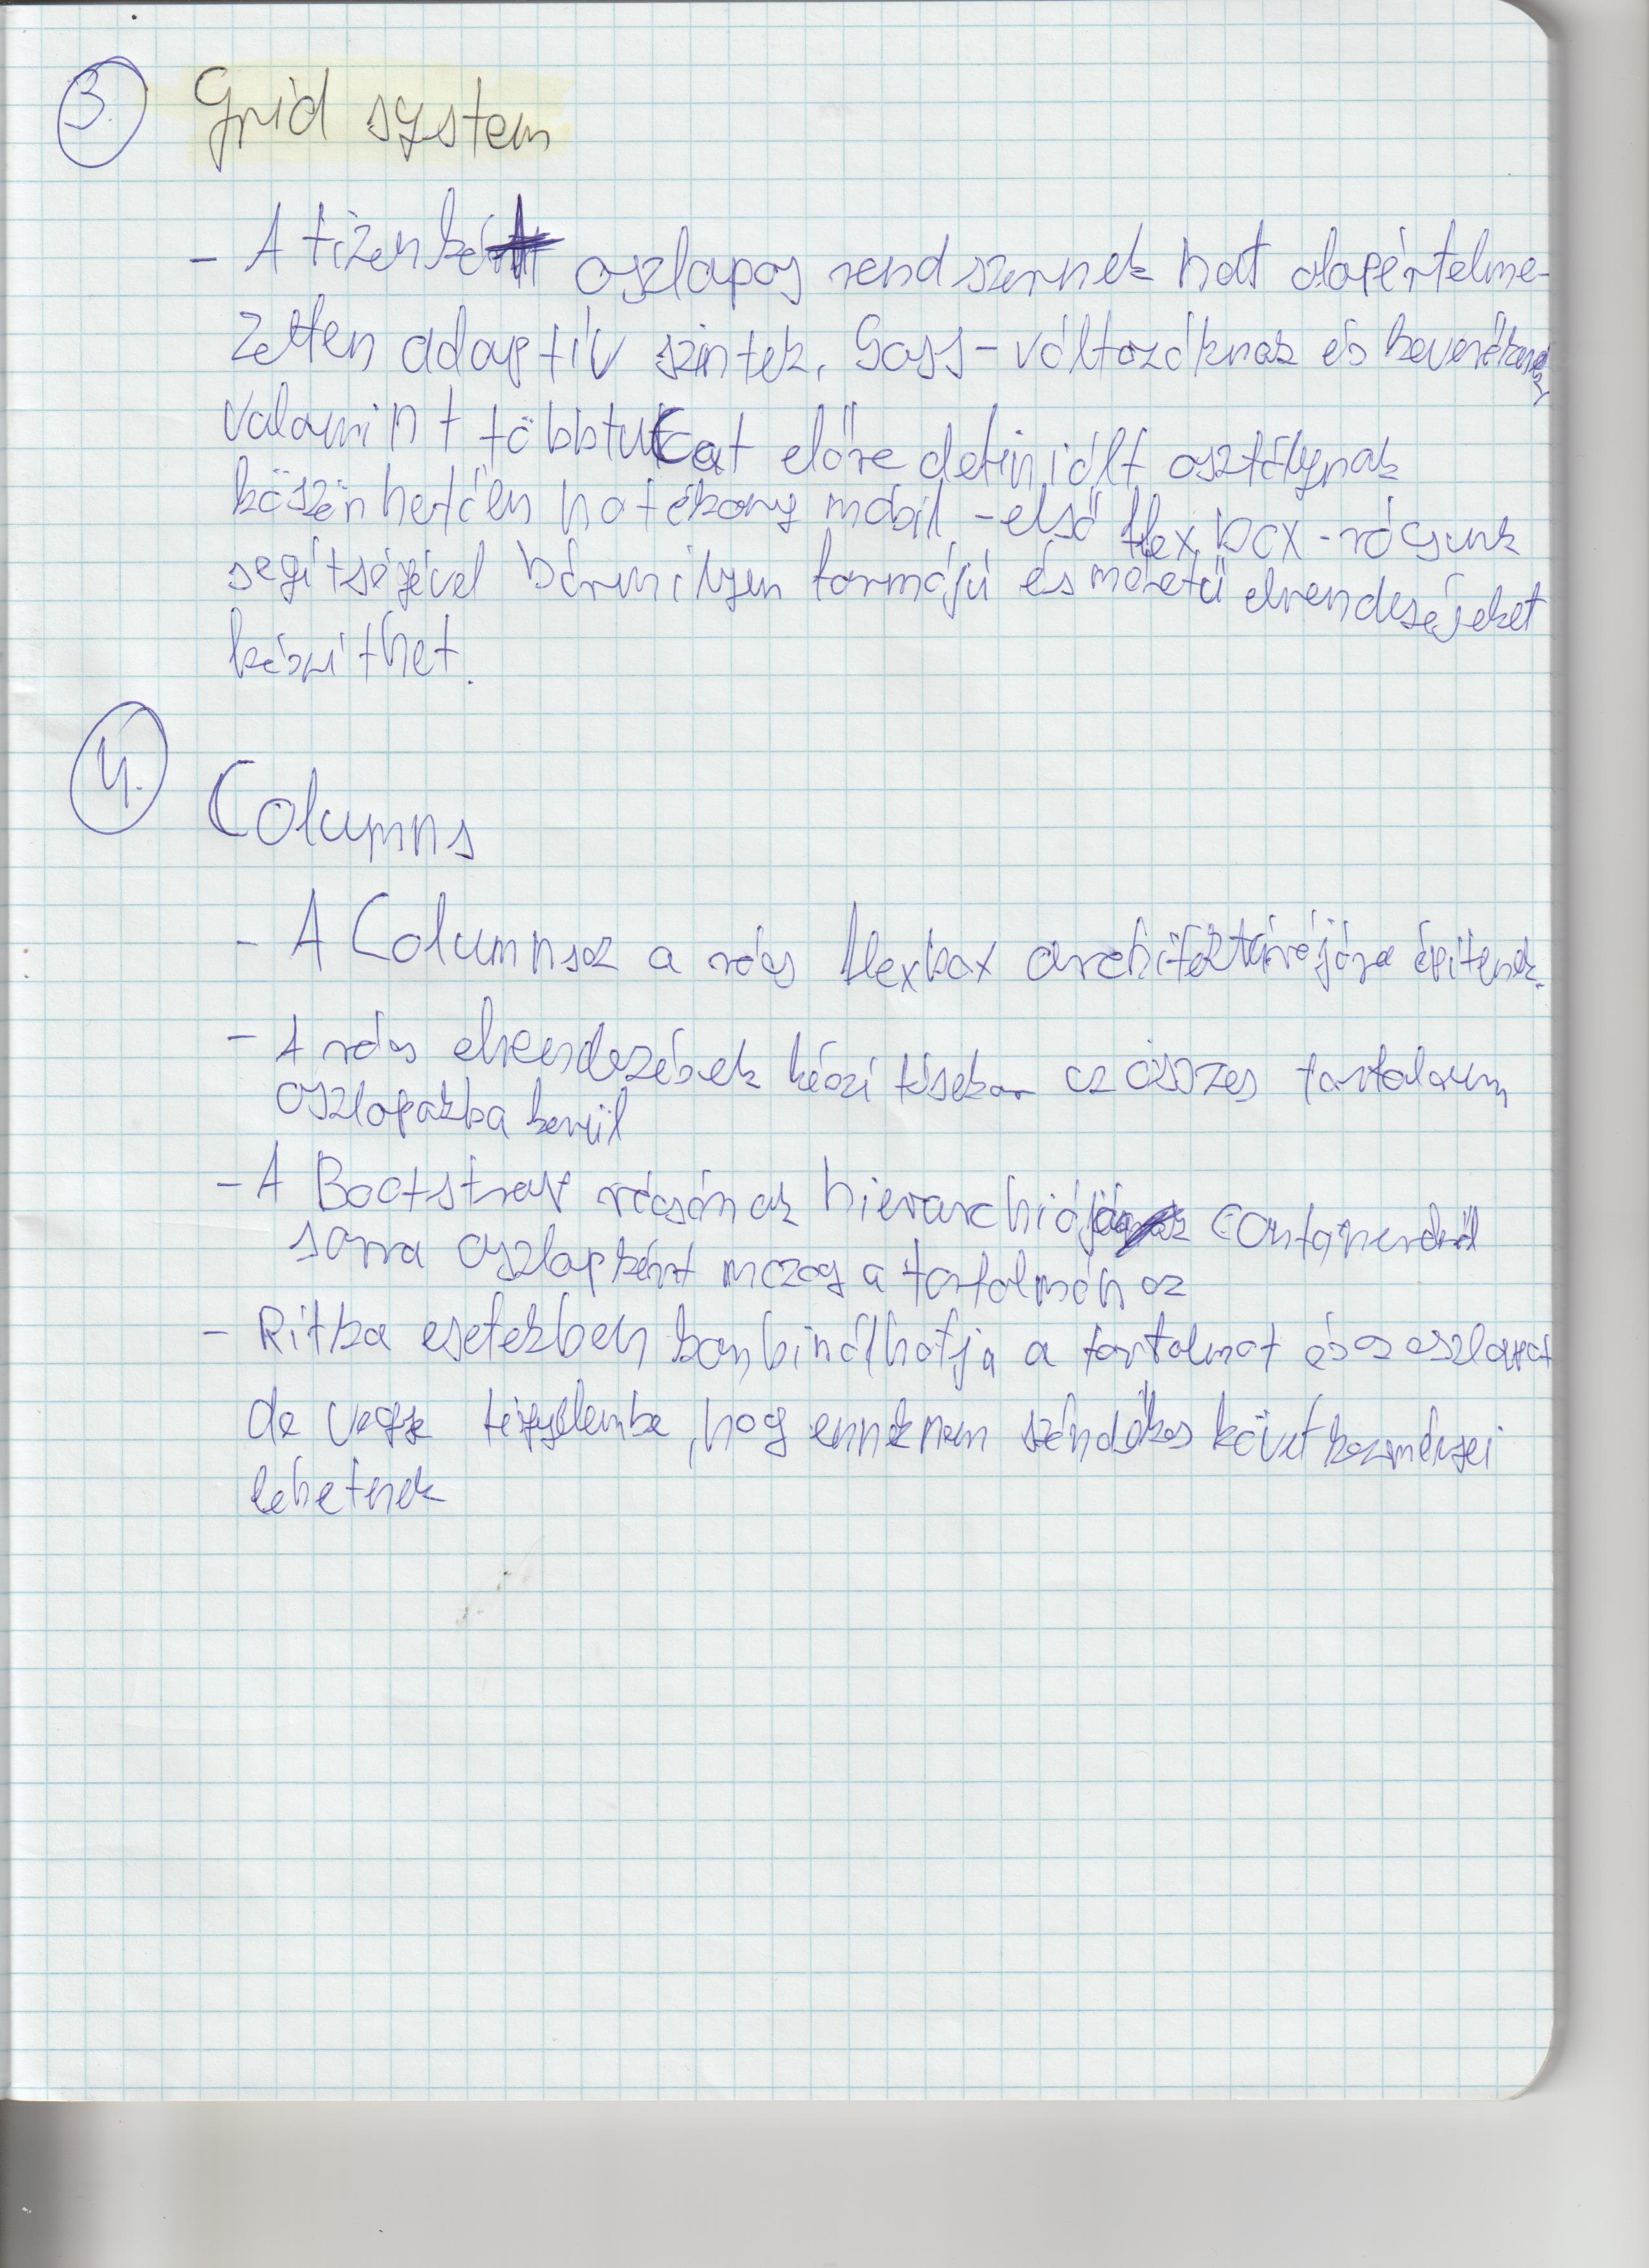 3. Grid system
- A tizenkét oszlopos rendszernek hat alapértelme-
zetten adaptív szintek, Sass-változóknak és
valamint többtucat előre definiált osztálynak
köszönhetően hatékony mobil-első flexbox-rácsunk
segítségével bármilyen formájú és méretű elrendeséjeket
készíthet.
4. Columns
- A Columnsok a rács flexbox architektúrájára építenek.
- A rács elrendezések készítésekor az összes tartalom
oszlopokba kerül
- A Bootstrap rácsának hierarchiájá
sorra oszlopként mozog a tartalmán az
- Ritka esetekben kombinálhatja a tartalmat és az oszlopot
de vegye figyelembe, hog ennek nem szándékos következményei
lehetnek